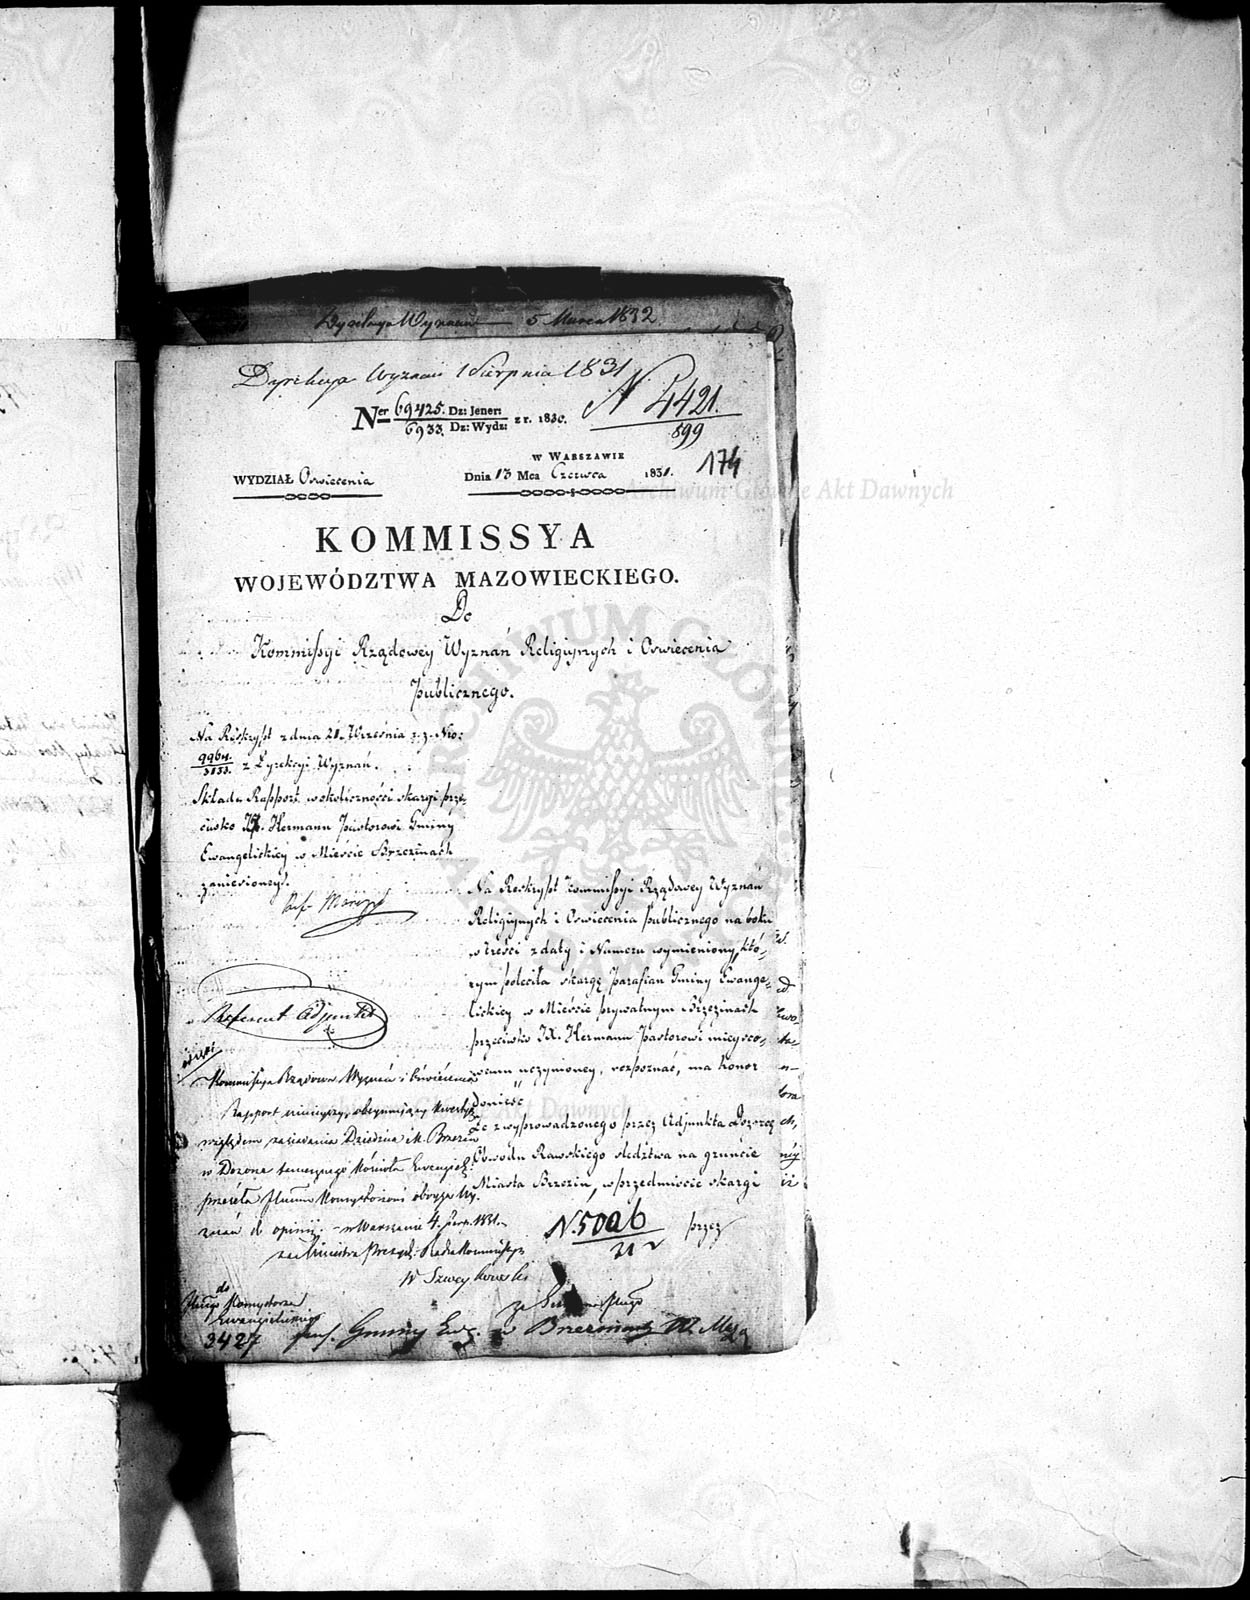 Dyrekcya Wyznań 5 Marca 1832
Dyrekcya Wyznań 1 Sierpnia 1831
N 4421.
899
Ner 69425. Dz: Jener: z r. 1830.
6933. Dz: Wydz:
174
W WARSZAWIE
WYDZIAŁ Oswiecenia
Dnia 13 Mca Czerwca 1831.
Archiwum Główne Akt Dawnych
KOMMISSYA
WOJEWÓDZTWA MAZOWIECKIEGO.
Do
Kommissyi Rządowey Wyznań Religiynych i Oswiecenia
Publicznego.
Na Reskrypt z dnia 21. Września r. z. Nro:
9964.
3133. z Dyrekcyi Wyznań.
Składa Rapport w okoliczności skargi prze-
ciwko JX. Hermann Pastorowi Gminy
Ewangelickiey w Mieście Brzezinach
zaniesioney.
Na Reskrypt Kommissyi Rządowey Wyznań
Religiynych i Oswiecenia Publicznego na boku
w treści z daty i Numeru wymieniony, któ-
rym poleciła skargę Parafian Gminy Ewange-
lickiey w Mieście prywatnym Brzezinach
przeciwko JX. Hermann Pastorowi mieysco-
wemu uczynioney, rozpoznać, ma honor
donieść
Że z wyprowadzonego przez Adjunkta Dozorcę
Obwodu Rawskiego śledztwa na gruncie
Miasta Brzezin, w przedmiocie skargi
przez
Referent Adjunkt
Kommissya Rządowa Wyznań i Oświecenia
Rapport ninieyszy, obeymujący kwestyę
względem zasiadania Dziedzica M. Brzezin
w Dozorze tamecznego Kościoła Ewangiel:
przesyła Jłnemu Konsystorzowi oboyga Wy-
znań do opinii. - w Warszawie 4. Sierp. 1831.
za Ministra Prezyd: Radca Kommissyi
W Szweykowski
N. 5006
21
do
Jłnego Konsystorza
Ewangielickiego
3427
Gminy Ewg. w Brzezinach W. Maz